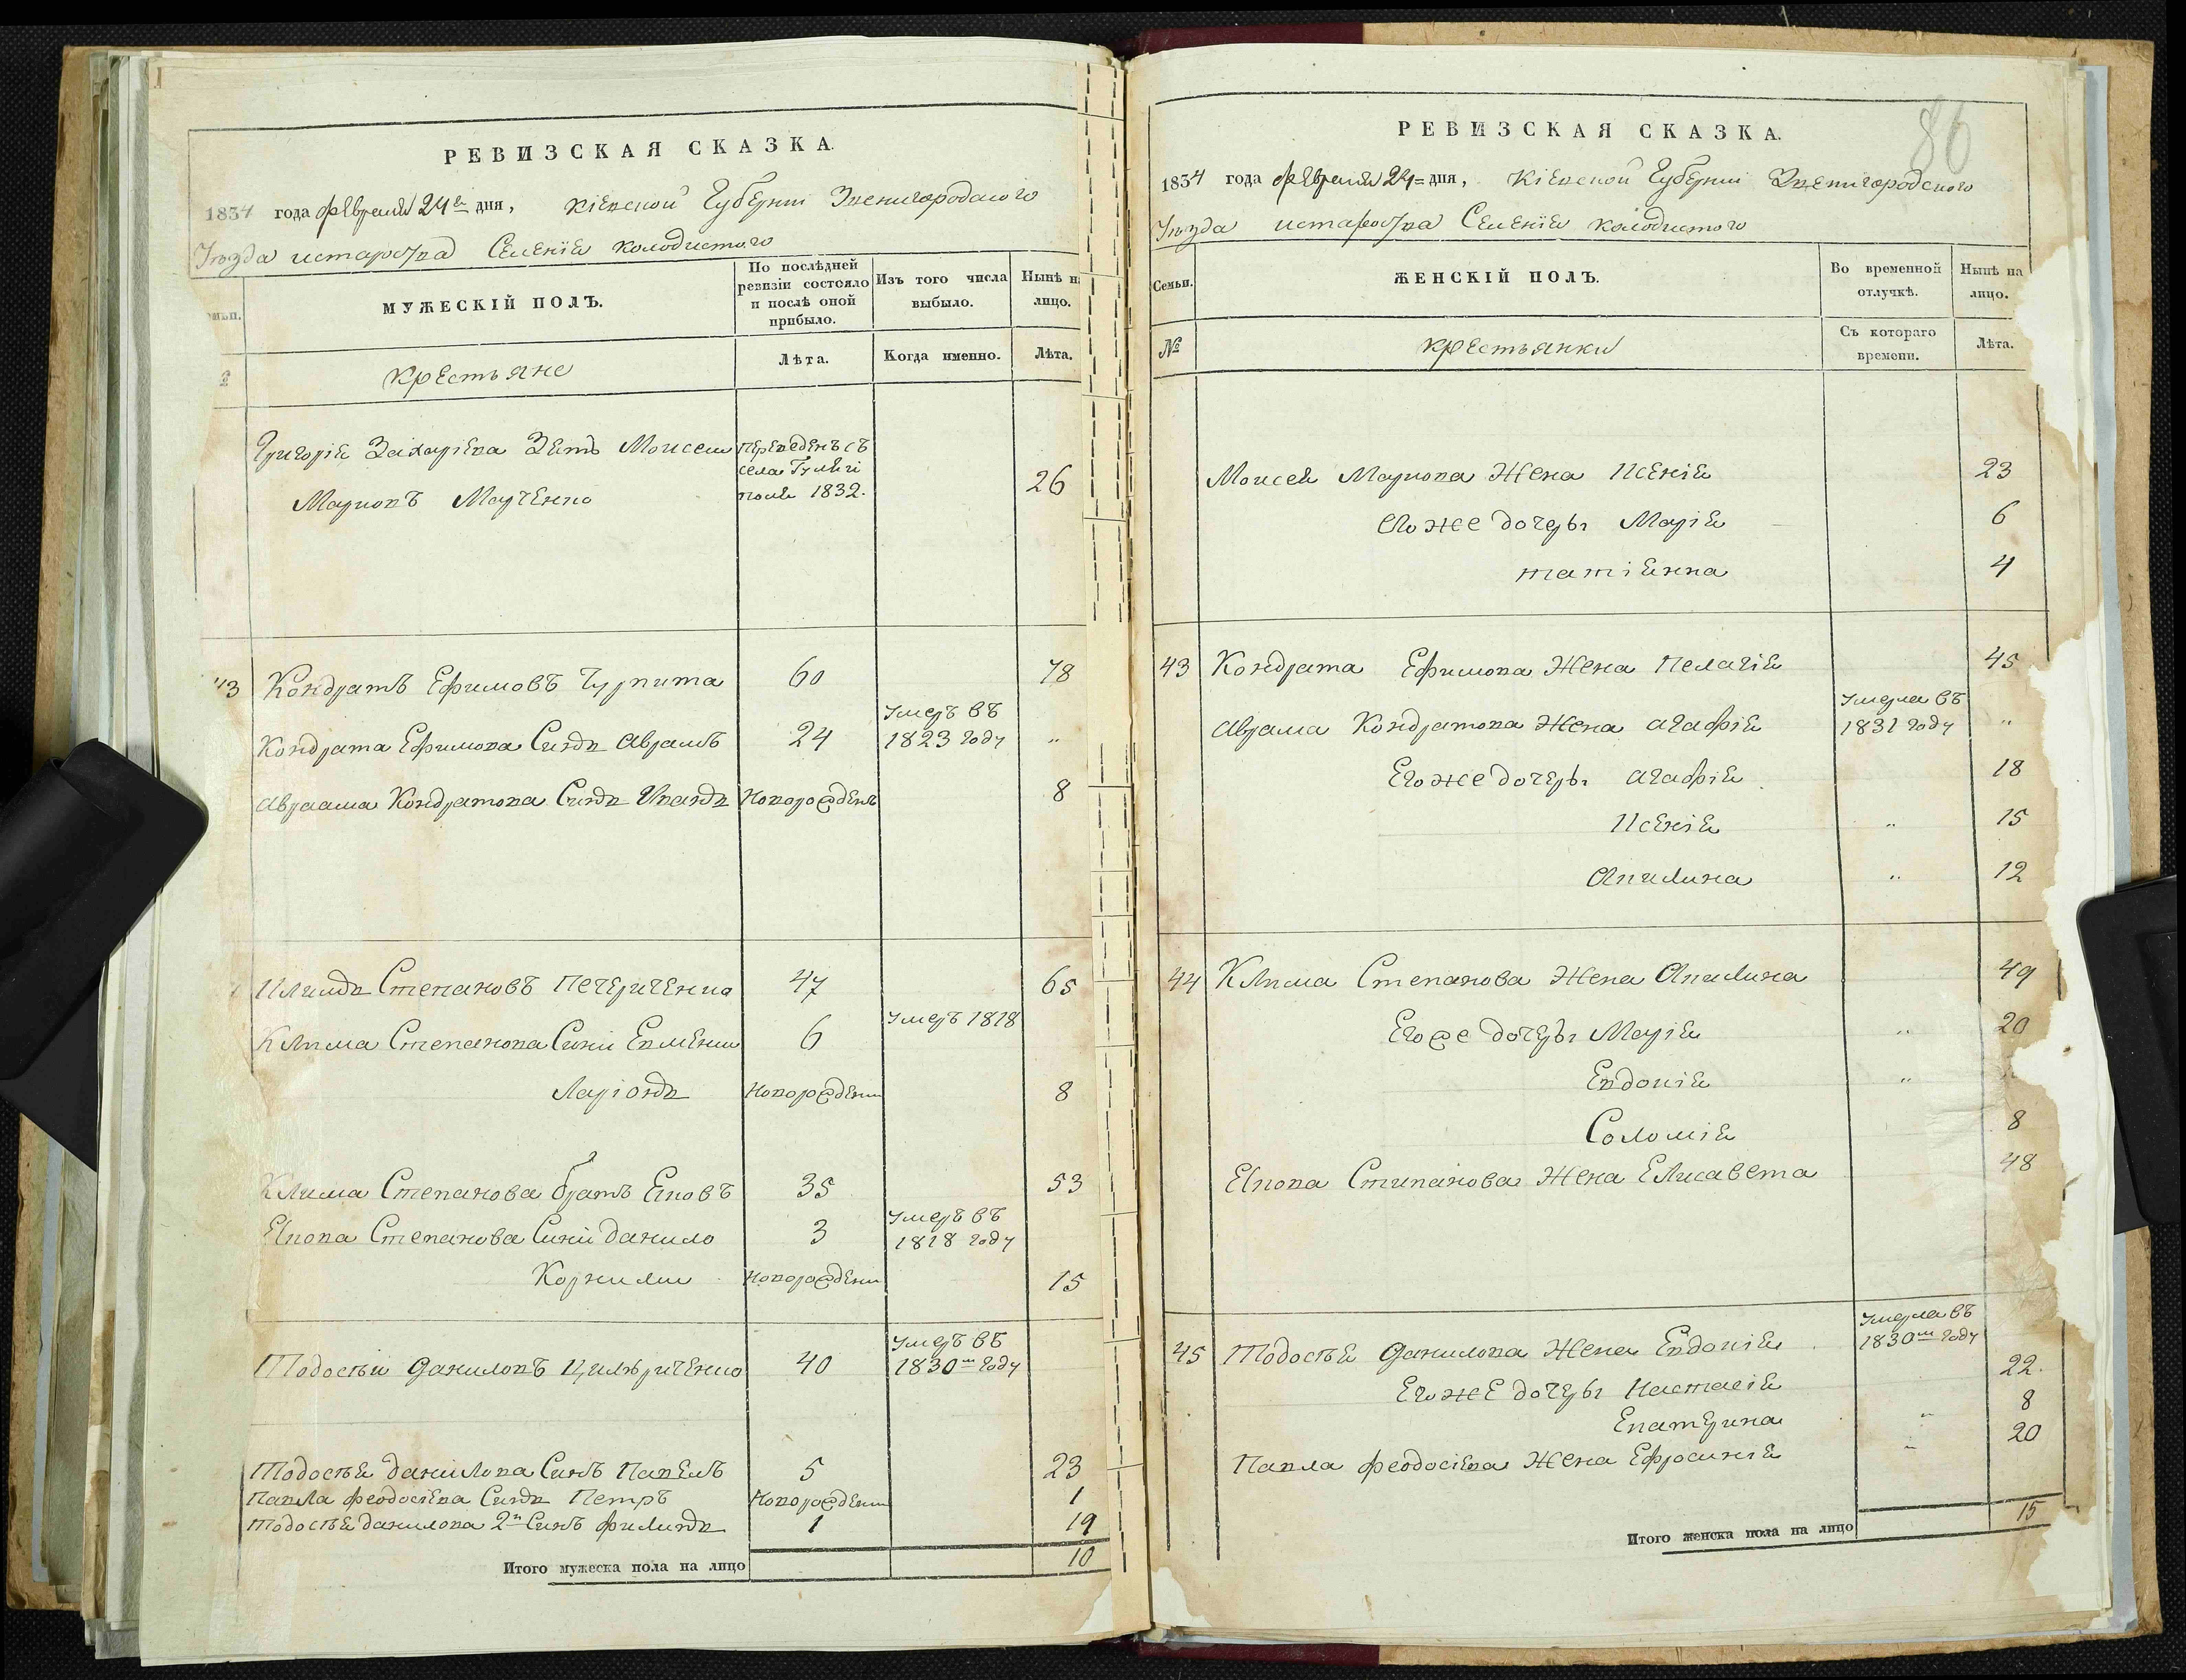 РЕВИЗСКАЯ СКАЗКА.
1834 года февраля 24го дня, Кіевской Губерніи Звенигородскаго
Уѣзда Староства Селенія Колодистого
МУЖЕСКІЙ ПОЛЪ.
По послѣдней ревизіи состояло и послѣ оной прибыло.
Изъ того числа выбыло.
Нынѣ на лицо.
Крестьяне
Лѣта.
Когда именно.
Лѣта.
Григорія Захаріева Зять Моисей
Марковъ Марченко
Переведенъ съ
села
1832.
26
43 Кондратъ Ефимовъ 60 78
Кондрата Ефимова Синъ Аврамъ 24 Умеръ въ 1823 году „
Авраама Кондратова Синъ Иванъ Новорожденъ 8
Климъ Степановъ Печериченко 47 65
Клима Степанова Сини Евмений 6 Умеръ 1818
Ларіонъ Новорожденни 8
Клима Степанова братъ Яковъ 35 53
Якова Степанова Сини Данило 3 Умеръ въ 1818 году
Корнилий Новорожденни 15
Тодосѣй Даниловъ 40 Умеръ въ 1830м году
Тодосѣя Данилова Синъ Павелъ 5 23
Павла Феодосіева Синъ Петръ Новорожденни 1
Тодосѣя Данилова 2й Синъ Филипъ 1 19
Итого мужеска пола на лицо 10
86
РЕВИЗСКАЯ СКАЗКА.
1834 года февраля 24 дня, Кіевской Губерніи Звенигородского
Уѣзда Староства Селенія Колодистого
Семьи.
ЖЕНСКІЙ ПОЛЪ.
Во временной отлучкѣ.
Нынѣ на лицо.
№
Крестьянки
Съ котораго времени.
Лѣта.
Моисея Маркова Жена Ксенія 23
Его же дочеры Марія 6
татіянна 4
43 Кондрата Ефимова Жена Пелагія 45
Аврама Кондратова Жена Агафія Умерла въ 1831 году „
Его же дочеры Агафія 18
Ксенія „ 15
Акилина „ 12
44 Клима Степанова Жена Акилина 49
Его же дочеры Марія „ 20
Евдокія „
Соломія 8
Якова Стипанова Жена Елисавета 48
45 Тодосѣя Данилова Жена Евдокія Умерла въ 1830м году
Его же дочеры Настасія 22.
Екатерина „ 8
Павла Феодосіева Жена Ефросинія „ 20
Итого женска пола на лицо 15